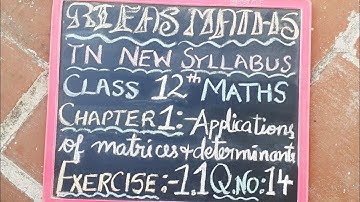 RIFAS MATHS
TN NEW SYLLABUS
CLASS 12th MATHS
CHAPTER 1:-Applications
of matrices & determinants
EXERCISE:-1.1 Q.NO:14